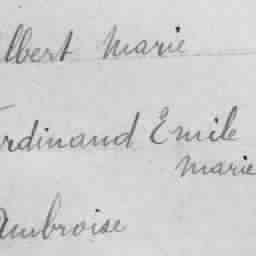 Albert Marie
Ferdinand Emile
Marie
Ambroise